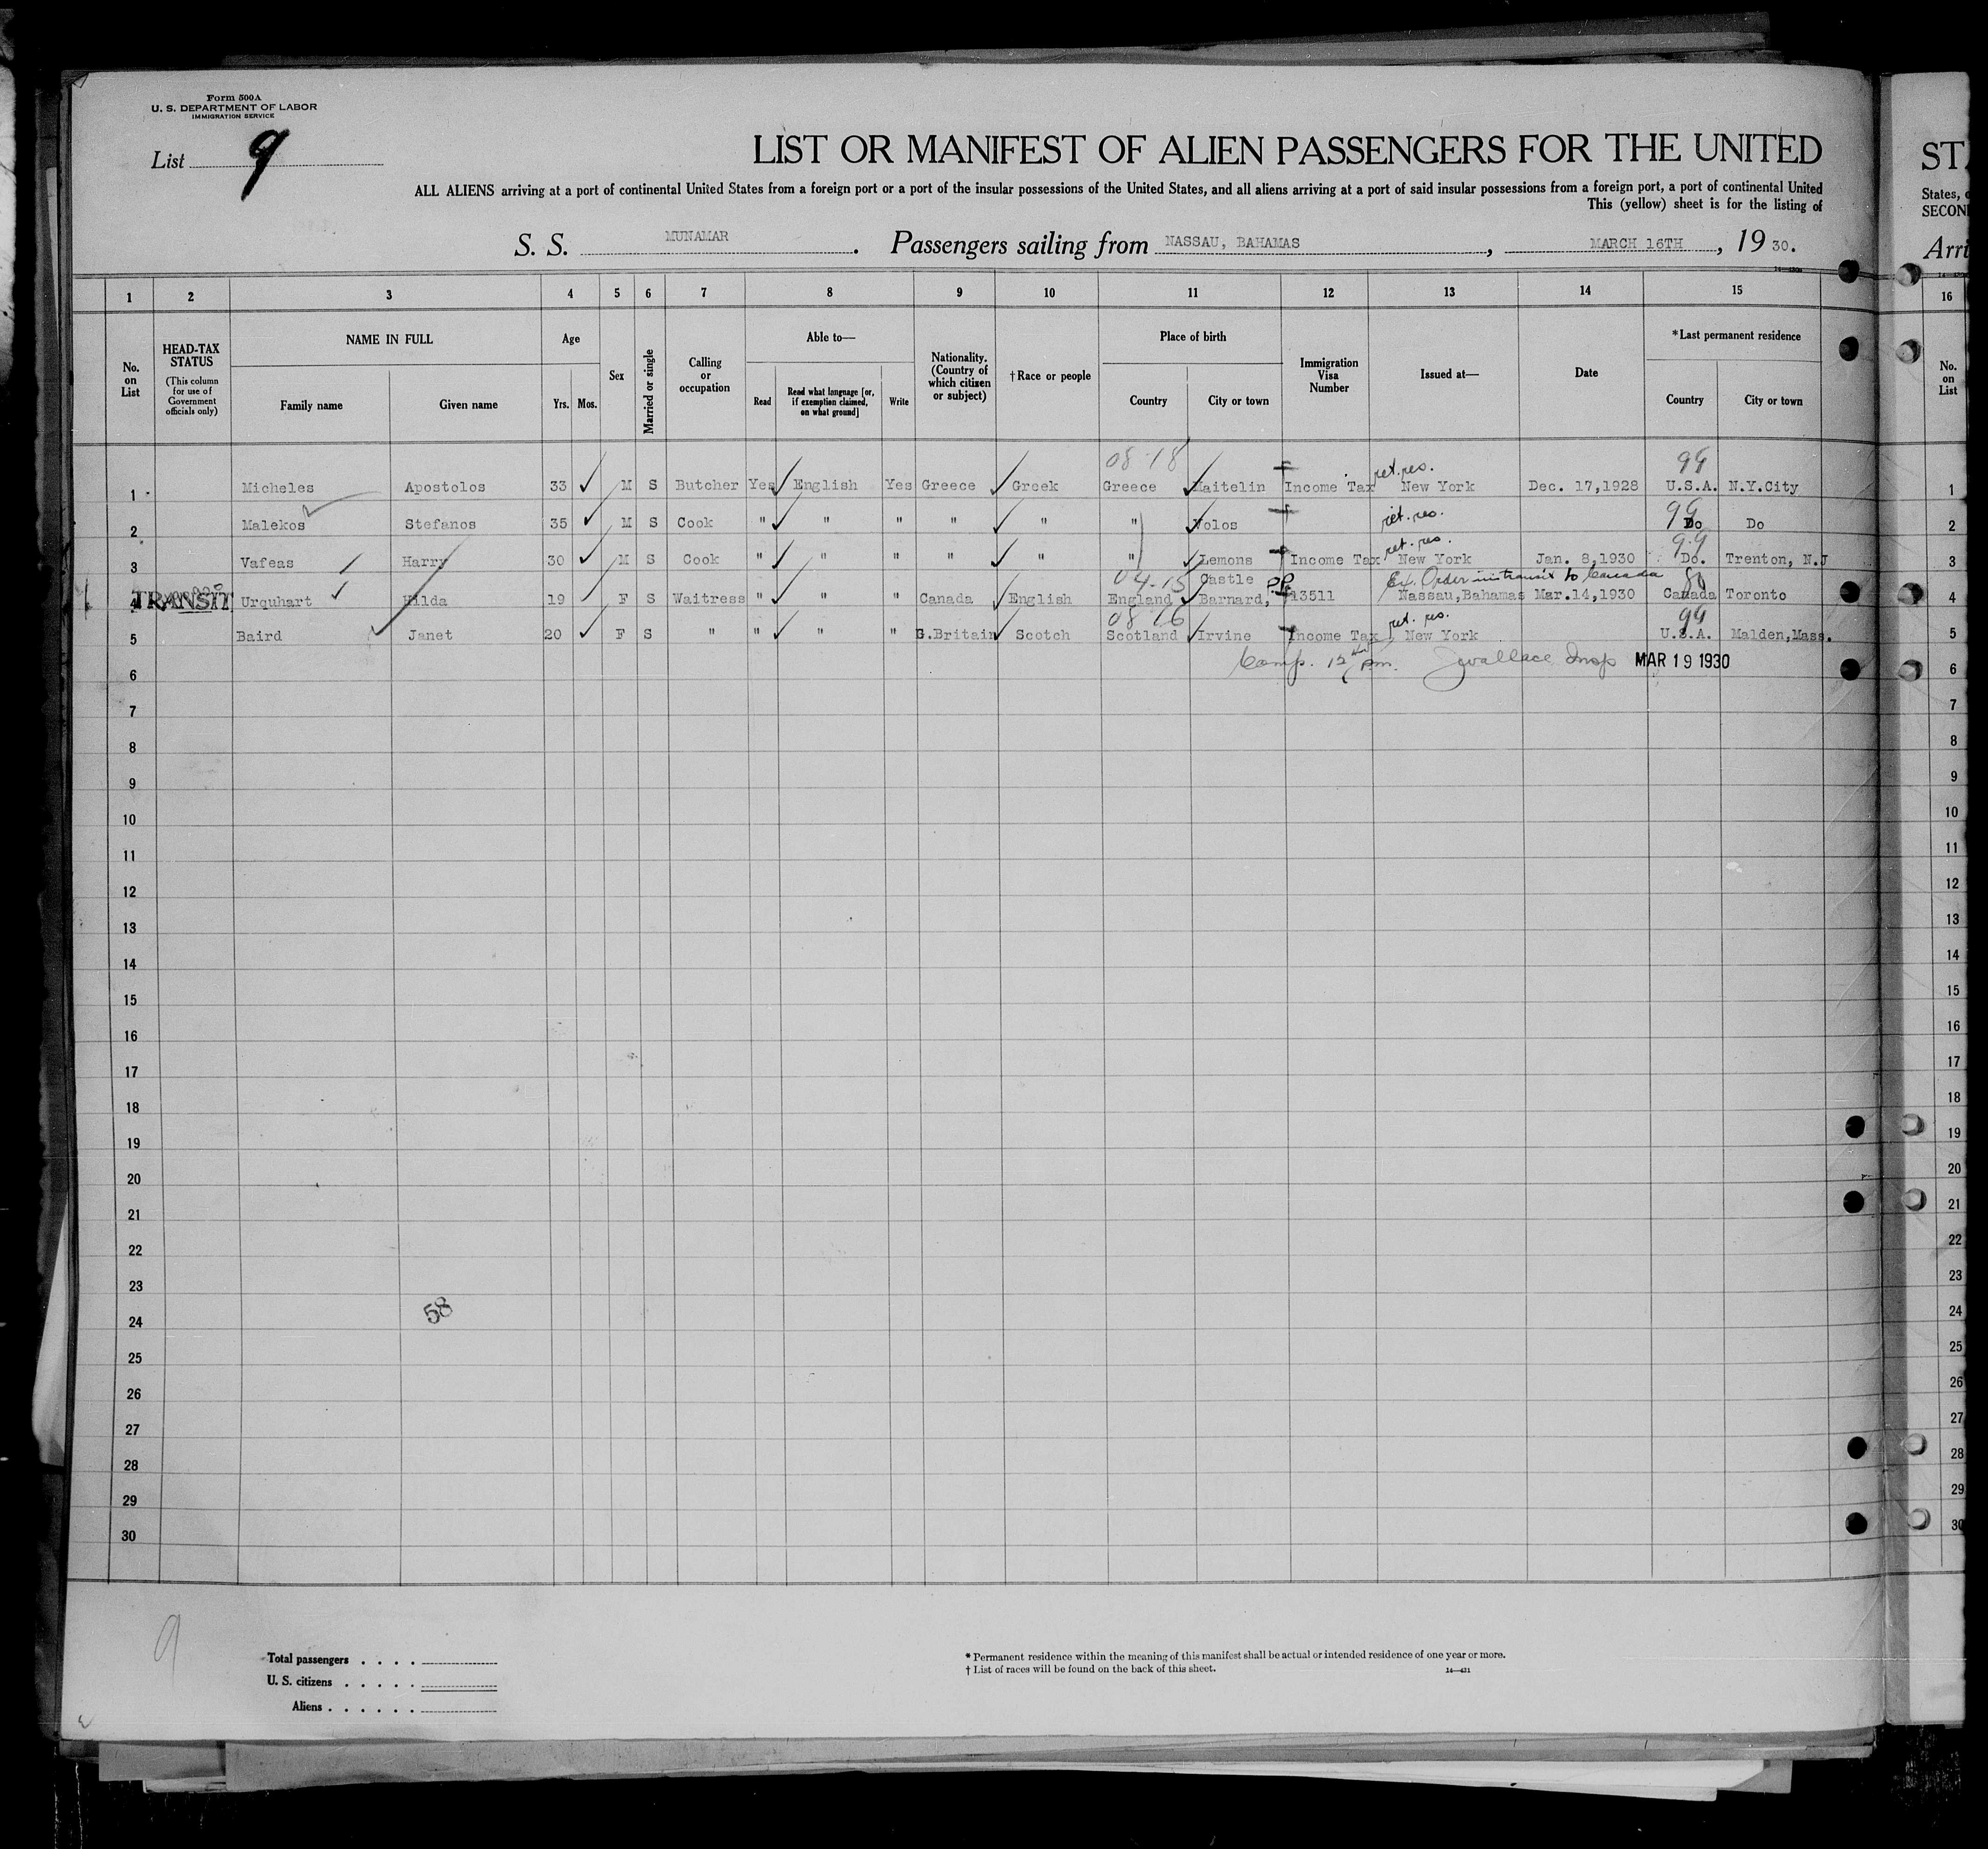 Form 500A
U. S. DEPARTMENT OF LABOR
IMMIGRATION SERVICE
List 9
LIST OR MANIFEST OF ALIEN PASSENGERS FOR THE UNITED
ALL ALIENS arriving at a port of continental United States from a foreign port or a port of the insular possessions of the United States, and all aliens arriving at a port of said insular possessions from a foreign port, a port of continental United
This (yellow) sheet is for the listing of
S. S. MUNAMAR. Passengers sailing from NASSAU, BAHAMAS, MARCH 16TH, 1930.
1 2 3 4 5 6 7 8 9 10 11 12 13 14 15
No. on List
HEAD-TAX STATUS (This column for use of Government officials only)
NAME IN FULL
Family name Given name
Age
Yrs. Mos.
Sex
Married or single
Calling or occupation
Able to—
Read
Read what language [or, if exemption claimed, on what ground]
Write
Nationality. (Country of which citizen or subject)
†Race or people
Place of birth
Country City or town
Immigration Visa Number
Issued at—
Date
*Last permanent residence
Country City or town
08-18 ret. res. 99
1 Micheles Apostolos 33 M S Butcher Yes English Yes Greece Greek Greece Maitelin Income Tax New York Dec. 17,1928 U.S.A. N.Y.City
ret. res. 99
2 Malekos Stefanos 35 M S Cook " " " " " " Volos Do Do
ret. res. 99
3 Vafeas Harry 30 M S Cook " " " " " " Lemons Income Tax New York Jan. 8,1930 Do. Trenton, N.J
04-15 Castle PP Ex. Order in transit to Canada 80
4 TRANSIT Urquhart Hilda 19 F S Waitress " " " Canada English England Barnard, 13511 Nassau,Bahamas Mar.14,1930 Canada Toronto
08 16 ret. res. 99
5 Baird Janet 20 F S " " " " G.Britain Scotch Scotland Irvine Income Tax New York U.S.A. Malden,Mass.
Comp. 12 pm. J Wallace Insp MAR 19 1930
6
7
8
9
10
11
12
13
14
15
16
17
18
19
20
21
22
23
24
58
25
26
27
28
29
30
9
Total passengers . . . .
U. S. citizens . . . . .
Aliens . . . . . .
* Permanent residence within the meaning of this manifest shall be actual or intended residence of one year or more.
† List of races will be found on the back of this sheet.
14—431
STA
States, o
SECON
Arri
16
No. on List
1
2
3
4
5
6
7
8
9
10
11
12
13
14
15
16
17
18
19
20
21
22
23
24
25
26
27
28
29
30